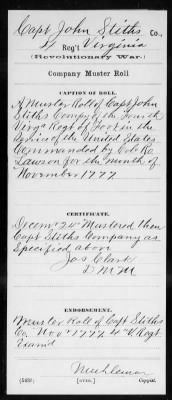 Capt John Stiths Co.,
4 Reg't Virginia
(Revolutionary War.)
Company Muster Roll
CAPTION OF ROLL.
A Muster Roll of Capt John
Stiths Compy of the Fourth
Virga Regt of Foot in the
Service of the United States
Commanded by Colo Ro
Lawson for the month of
November 1777
CERTIFICATE.
Decemr 2d Mustered then
Capt Stiths Company as
Specified above
Jas Clark
D M M
ENDORSEMENT.
Muster Roll of Capt Stiths
Co. Novr 1777 4th V Regt
Examd
Muhleman
(543c) [OVER.] Copyist.